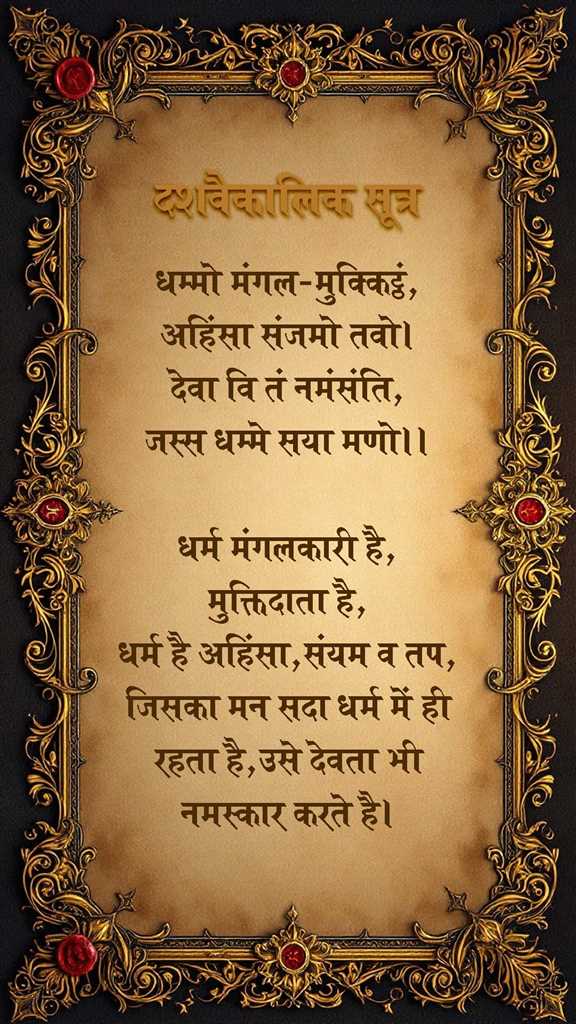 दशवैकालिक सूत्र
धम्मो मंगल-मुक्किट्ठं,
अहिंसा संजमो तवो।
देवा वि तं नमंसंति,
जस्स धम्मे सया मणो।।
धर्म मंगलकारी है,
मुक्तिदाता है,
धर्म है अहिंसा,संयम व तप,
जिसका मन सदा धर्म में ही
रहता है,उसे देवता भी
नमस्कार करते है।